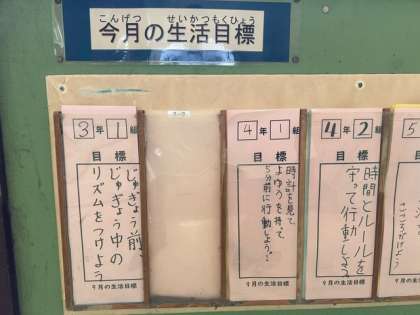 こんげつ せいかつもくひょう
今月の生活目標
3年1組
目標
じゅぎょう前、
じゅぎょう中の
リズムをつけよう
9月の生活目標
4年1組
目標
時計を見て
よゆうを持って
5分前に行動しよう!
9月の生活目標
4年2組
目標
時間とルールを
守って行動しよう
9月の生活目標
5